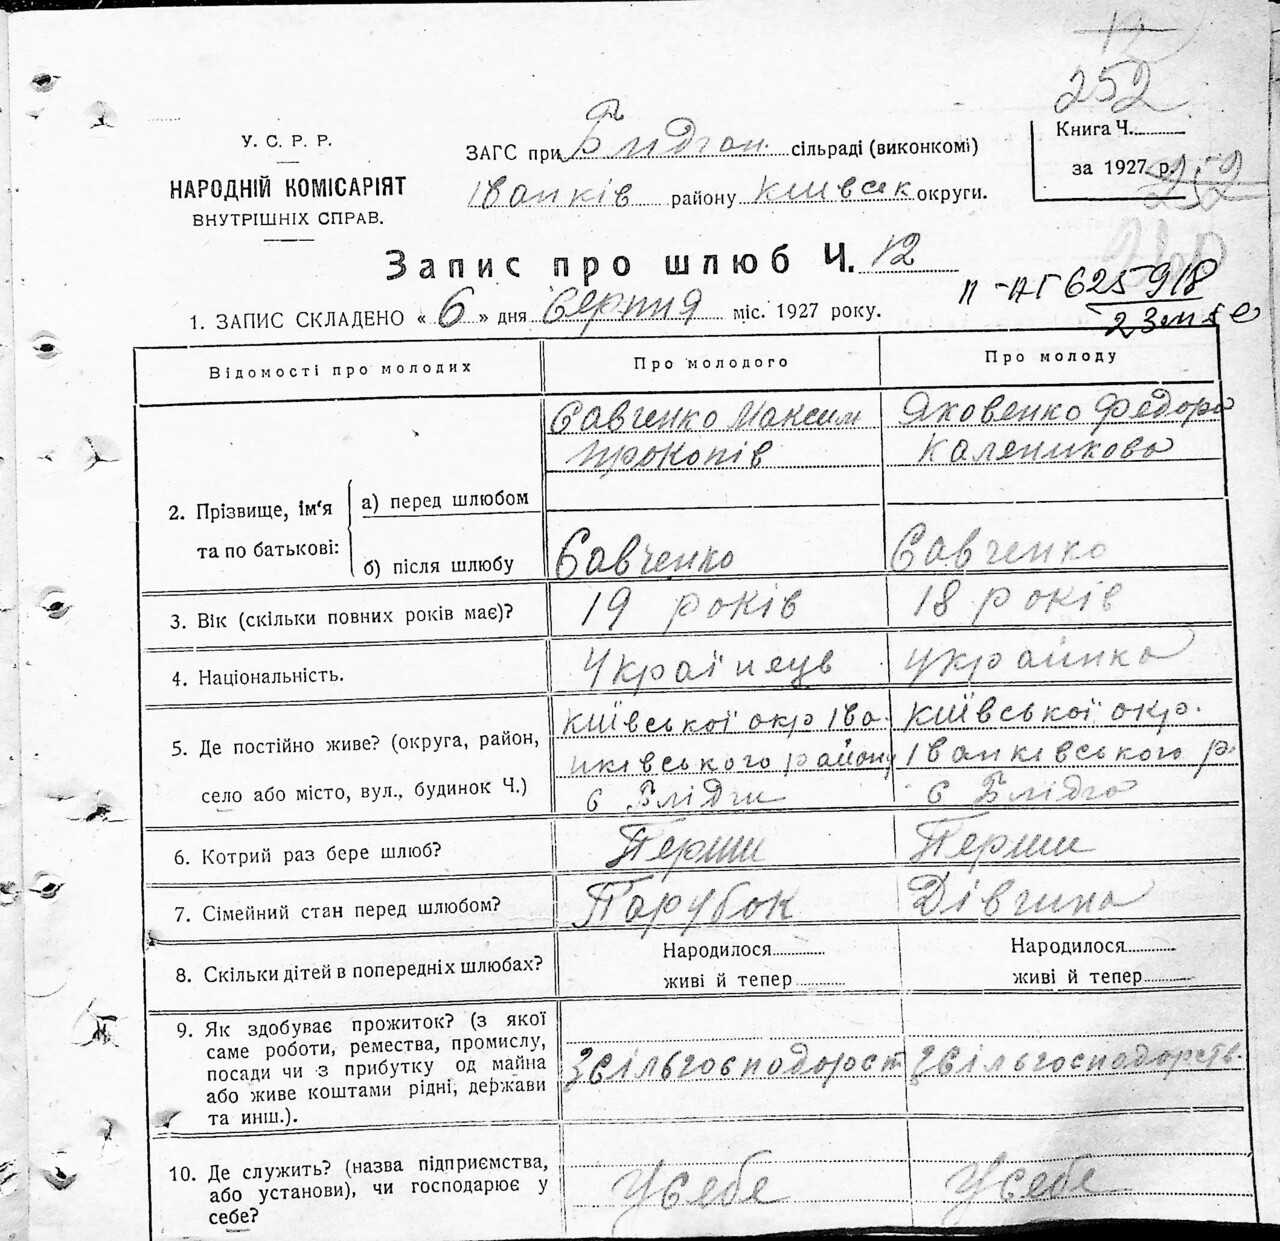 252
У. С. Р. Р.
НАРОДНІЙ КОМІСАРІЯТ
ВНУТРІШНІХ СПРАВ.
ЗАГС при Блідчан. сільраді (виконкомі)
Іванків району Київськ округи.
Книга Ч.
за 1927 р.
252
Запис про шлюб Ч. 12
1. ЗАПИС СКЛАДЕНО « 6 » дня Серпня міс. 1927 року.
II-АГ 625918
Відомості про молодих
Про молодого
Про молоду
2. Прізвище, ім'я та по батькові:
а) перед шлюбом
Савченко Максим
Прокопів
Яковенко Федора
Каленикова
б) після шлюбу
Савченко
Савченко
3. Вік (скільки повних років має)?
19 років
18 років
4. Національність.
Українець
Українка
5. Де постійно живе? (округа, район,
село або місто, вул., будинок Ч.)
Київської окр Іва
нківського району
с Блідчи
Київської окр.
Іванківського р.
с Блідча
6. Котрий раз бере шлюб?
Перши
Перши
7. Сімейний стан перед шлюбом?
Парубок
Дівчина
8. Скільки дітей в попередніх шлюбах?
Народилося
живі й тепер
Народилося
живі й тепер
9. Як здобуває прожиток? (з якої
саме роботи, ремества, промислу,
посади чи з прибутку од майна
або живе коштами рідні, держави
та инш.).
Зсільгосподорст
Зсільгосподорств.
10. Де служить? (назва підприємства,
або установи), чи господарює у
себе?
Усебе
Усебе